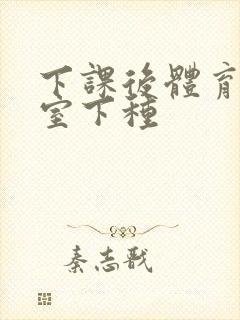 下課後體育
室下種
秦志戩